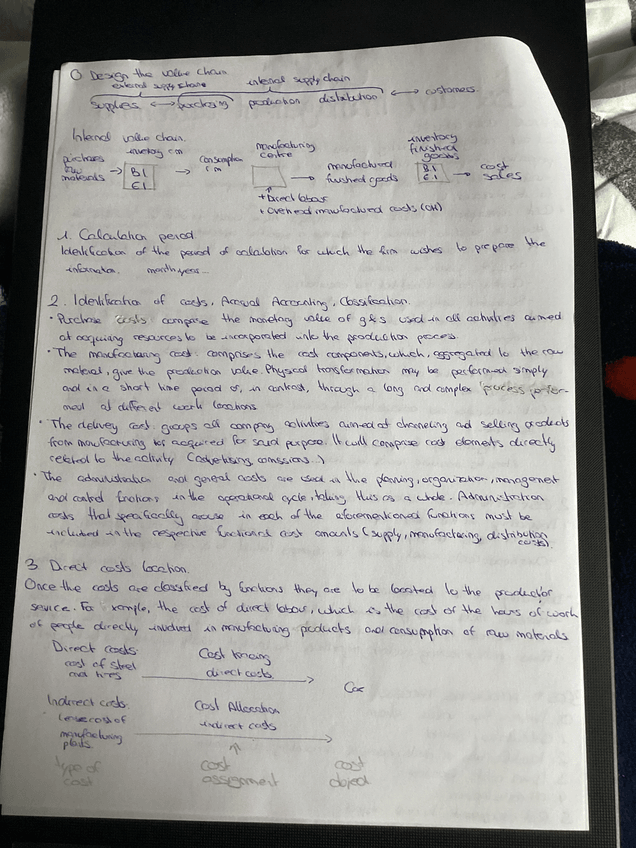 0 Design the value chain
external supply chain internal supply chain
Supplies ⟷ purchasing production distribution ⟷ customers
Internal value chain.
purchases raw materials → inventory r.m BI EI → consumption r.m → manufacturing centre → manufactured finished goods → inventory finished goods BI EI → cost sales
+ Direct labour
+ Overhead manufactured costs (OH)
1. Calculation period
Identification of the period of calculation for which the firm wishes to prepare the
information. month, year...
2. Identification of costs, Accrual Accounting, Classification.
• Purchase costs: compose the monetary value of g&s used in all activities aimed
at acquiring resources to be incorporated into the production process.
• The manufacturing cost: comprises the cost components, which, aggregated to the raw
material, give the production value. Physical transformation may be performed simply
and in a short time period or, in contrast, through a long and complex process perfor-
med at different work locations
• The delivery cost: groups all company activities aimed at channeling and selling products
from manufacturing or acquired for said purpose. It will comprise cost elements directly
related to the activity (advertising, comissions..)
• The administration and general costs are used in the planning, organization, management
and control functions in the operational cycle, taking this as a whole. Administration
costs that specifically arose in each of the aforementioned functions must be
included in the respective functional cost amounts (supply, manufacturing, distribution
costs).
3 Direct costs location.
Once the costs are classified by functions they are to be located to the product or
service. For example, the cost of direct labour, which is the cost of the hours of work
of people directly involved in manufacturing products and consumption of raw materials
Direct costs: Cost tracing
cost of steel direct costs.
and tires
Car
Indirect costs: Cost Allocation
lease cost of indirect costs
manufacturing
plants.
type of cost cost
cost assignment object